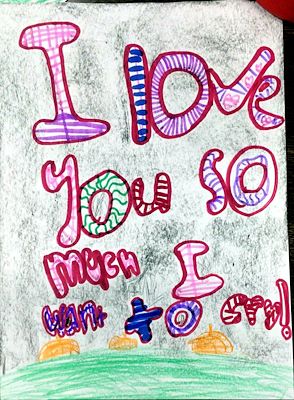 I love
You so
much I
want to cry!